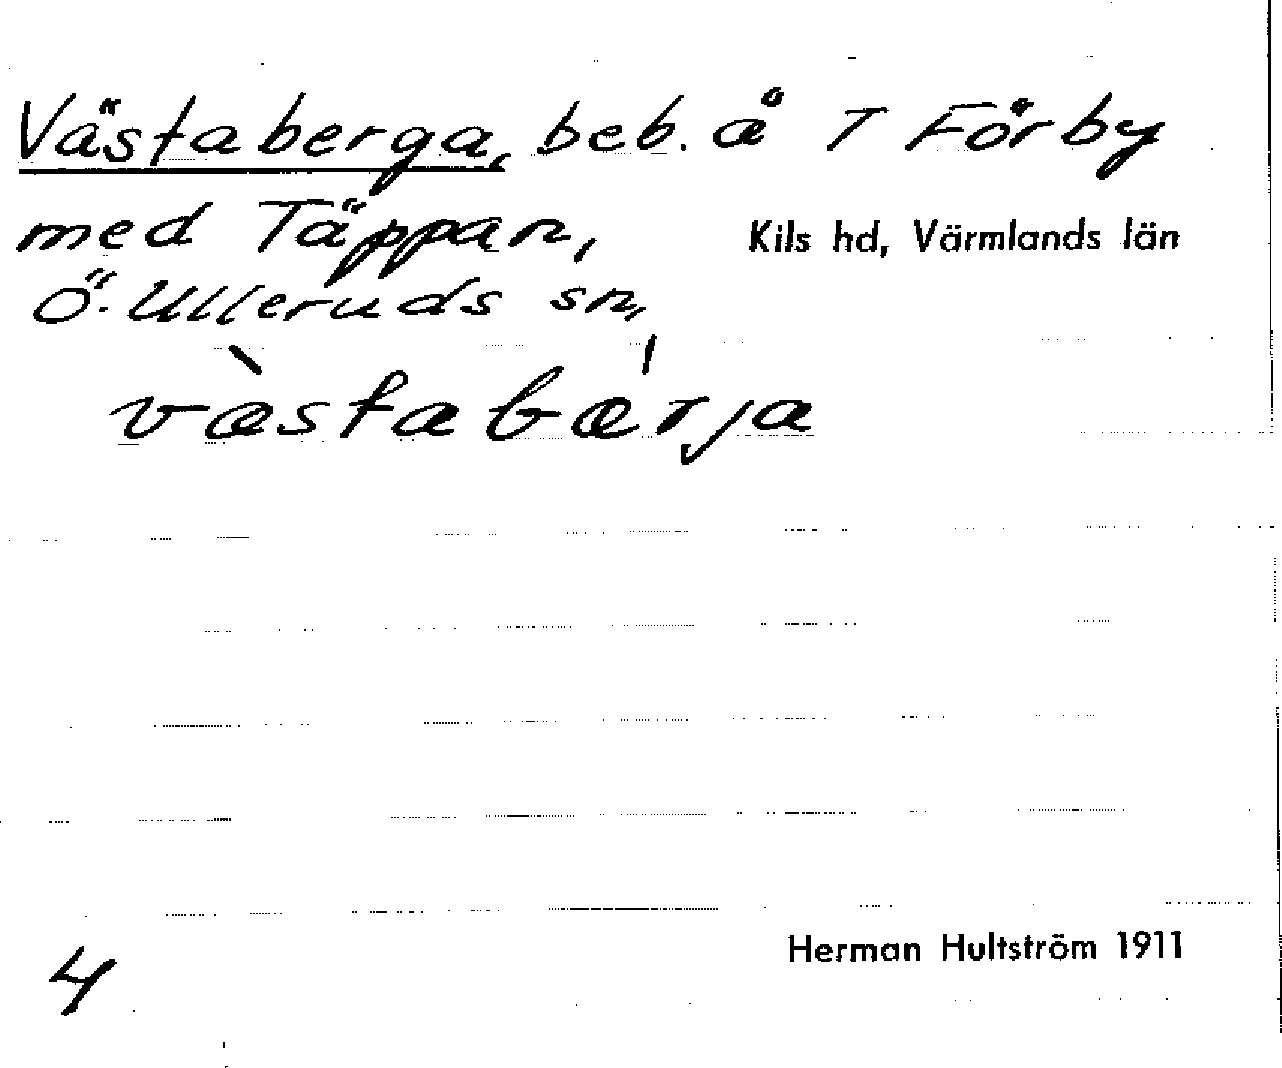 Västaberga, beb. å T Förby
med Täppan, Kils hd, Värmlands län
Ö. Ulleruds sn,
væ̀stabǽrja
4
Herman Hultström 1911